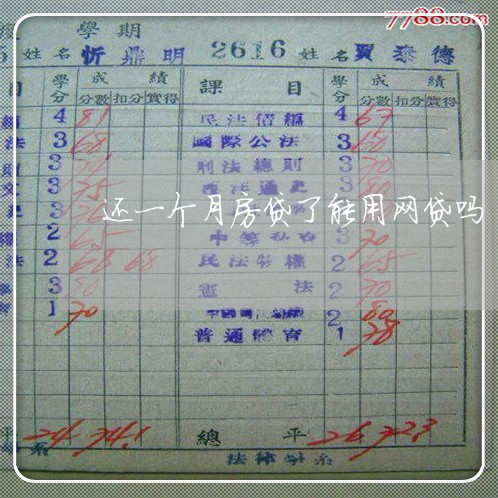 7788.com
學期
姓名 忻鼎明 2616 姓名 賈泰德
目 學分 成績 課目 學分 成績
分數 扣分 實得 分數 扣分 實得
4 81 民法債編 4 67
法 3 68 國際公法 3 60
3 刑法總則 3 70
3 75 3
还一个月房贷了能用网贷吗
2 65 3 70
法 2 68 68 民法物權 2 65
3 80 憲法 2 70
1 70 2 80
普通體育 1 78
平 24 74.1 總平 26 72.3
系 法律學系